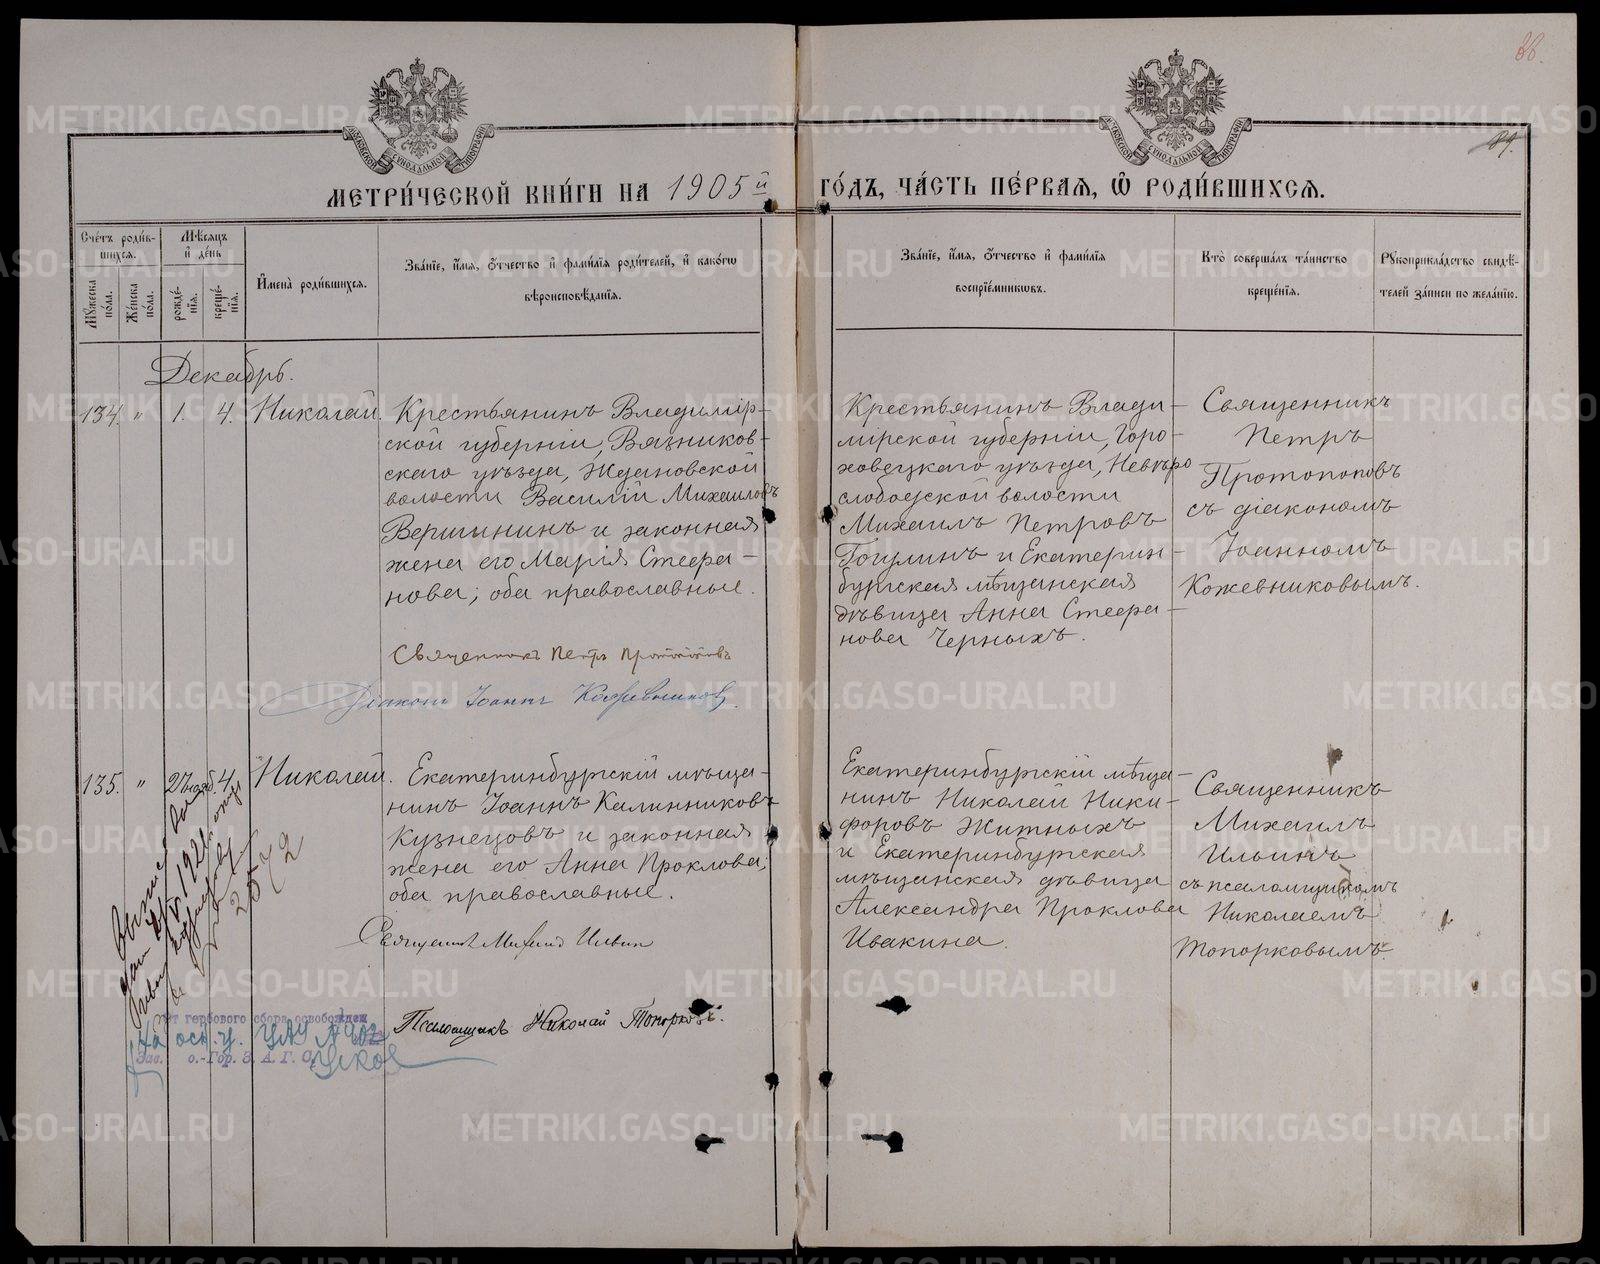 36.
89.
МЕТРИ́ЧЕСКОЙ КНИ́ГИ НА 1905й ГО́ДЪ, ЧА́СТЬ ПЕ́РВАѦ, Ѡ҆ РОДИ́ВШИХСѦ.
Сче́тъ роди́в-
шихсѧ.
Мꙋ́жеска по́ла.
Же́нска по́ла.
Мѣ́сѧцъ
и҆ де́нь
рожде́-
нїѧ.
креще́-
нїѧ.
И҆мена̀ роди́вшихсѧ.
Зва́нїе, и҆́мѧ, ѻ҆́тчество и҆ фами́лїѧ роди́телей, и҆ како́гѡ
вѣроисповѣ́данїѧ.
Зва́нїе, и҆́мѧ, ѻ҆́тчество и҆ фами́лїѧ
воспрїе́мникѡвъ.
Кто̀ соверша́лъ та́инство
креще́нїѧ.
Рꙋкоприкла́дство свидѣ́-
телей за́писи по жела́нїю.
Декабрь.
134. " 1. 4. Николай.
Крестьянинъ Владимір-
ской губерніи, Вязников-
скаго уѣзда, Ждановской
волости Василій Михаиловъ
Вершининъ и законная
жена его Марія Стефа-
нова; оба православные.
Священникъ Петръ Протопоповъ
Діаконъ Іоаннъ Кожевниковъ
Крестьянинъ Влади-
мірской губерніи, Горо-
ховецкаго уѣзда, Невѣро
слободской волости
Михаилъ Петровъ
Гогулинъ и Екатерин-
бургская мѣщанская
дѣвица Анна Стефа-
нова Черныхъ.
Священникъ
Петръ
Протопоповъ
съ діакономъ
Іоанномъ
Кожевниковымъ.
135. " 27 нояб. 4. Николай.
Екатеринбургскій мѣща-
нинъ Іоаннъ Калинниковъ
Кузнецовъ и законная
жена его Анна Проклова;
оба православные.
Священникъ Михаилъ Ильинъ
Псаломщикъ Николай Топорковъ.
Екатеринбургскій мѣща-
нинъ Николай Ники-
форовъ Житныхъ
и Екатеринбургская
мѣщанская дѣвица
Александра Проклова
Ивакина.
Священникъ
Михаилъ
Ильинъ
съ псаломщикомъ
Николаемъ
Топорковымъ.
2572
От гербового сбора освобожден
На осн. у.
Зав. о.-Гор. З. А. Г. С.
METRIKI.GASO-URAL.RU